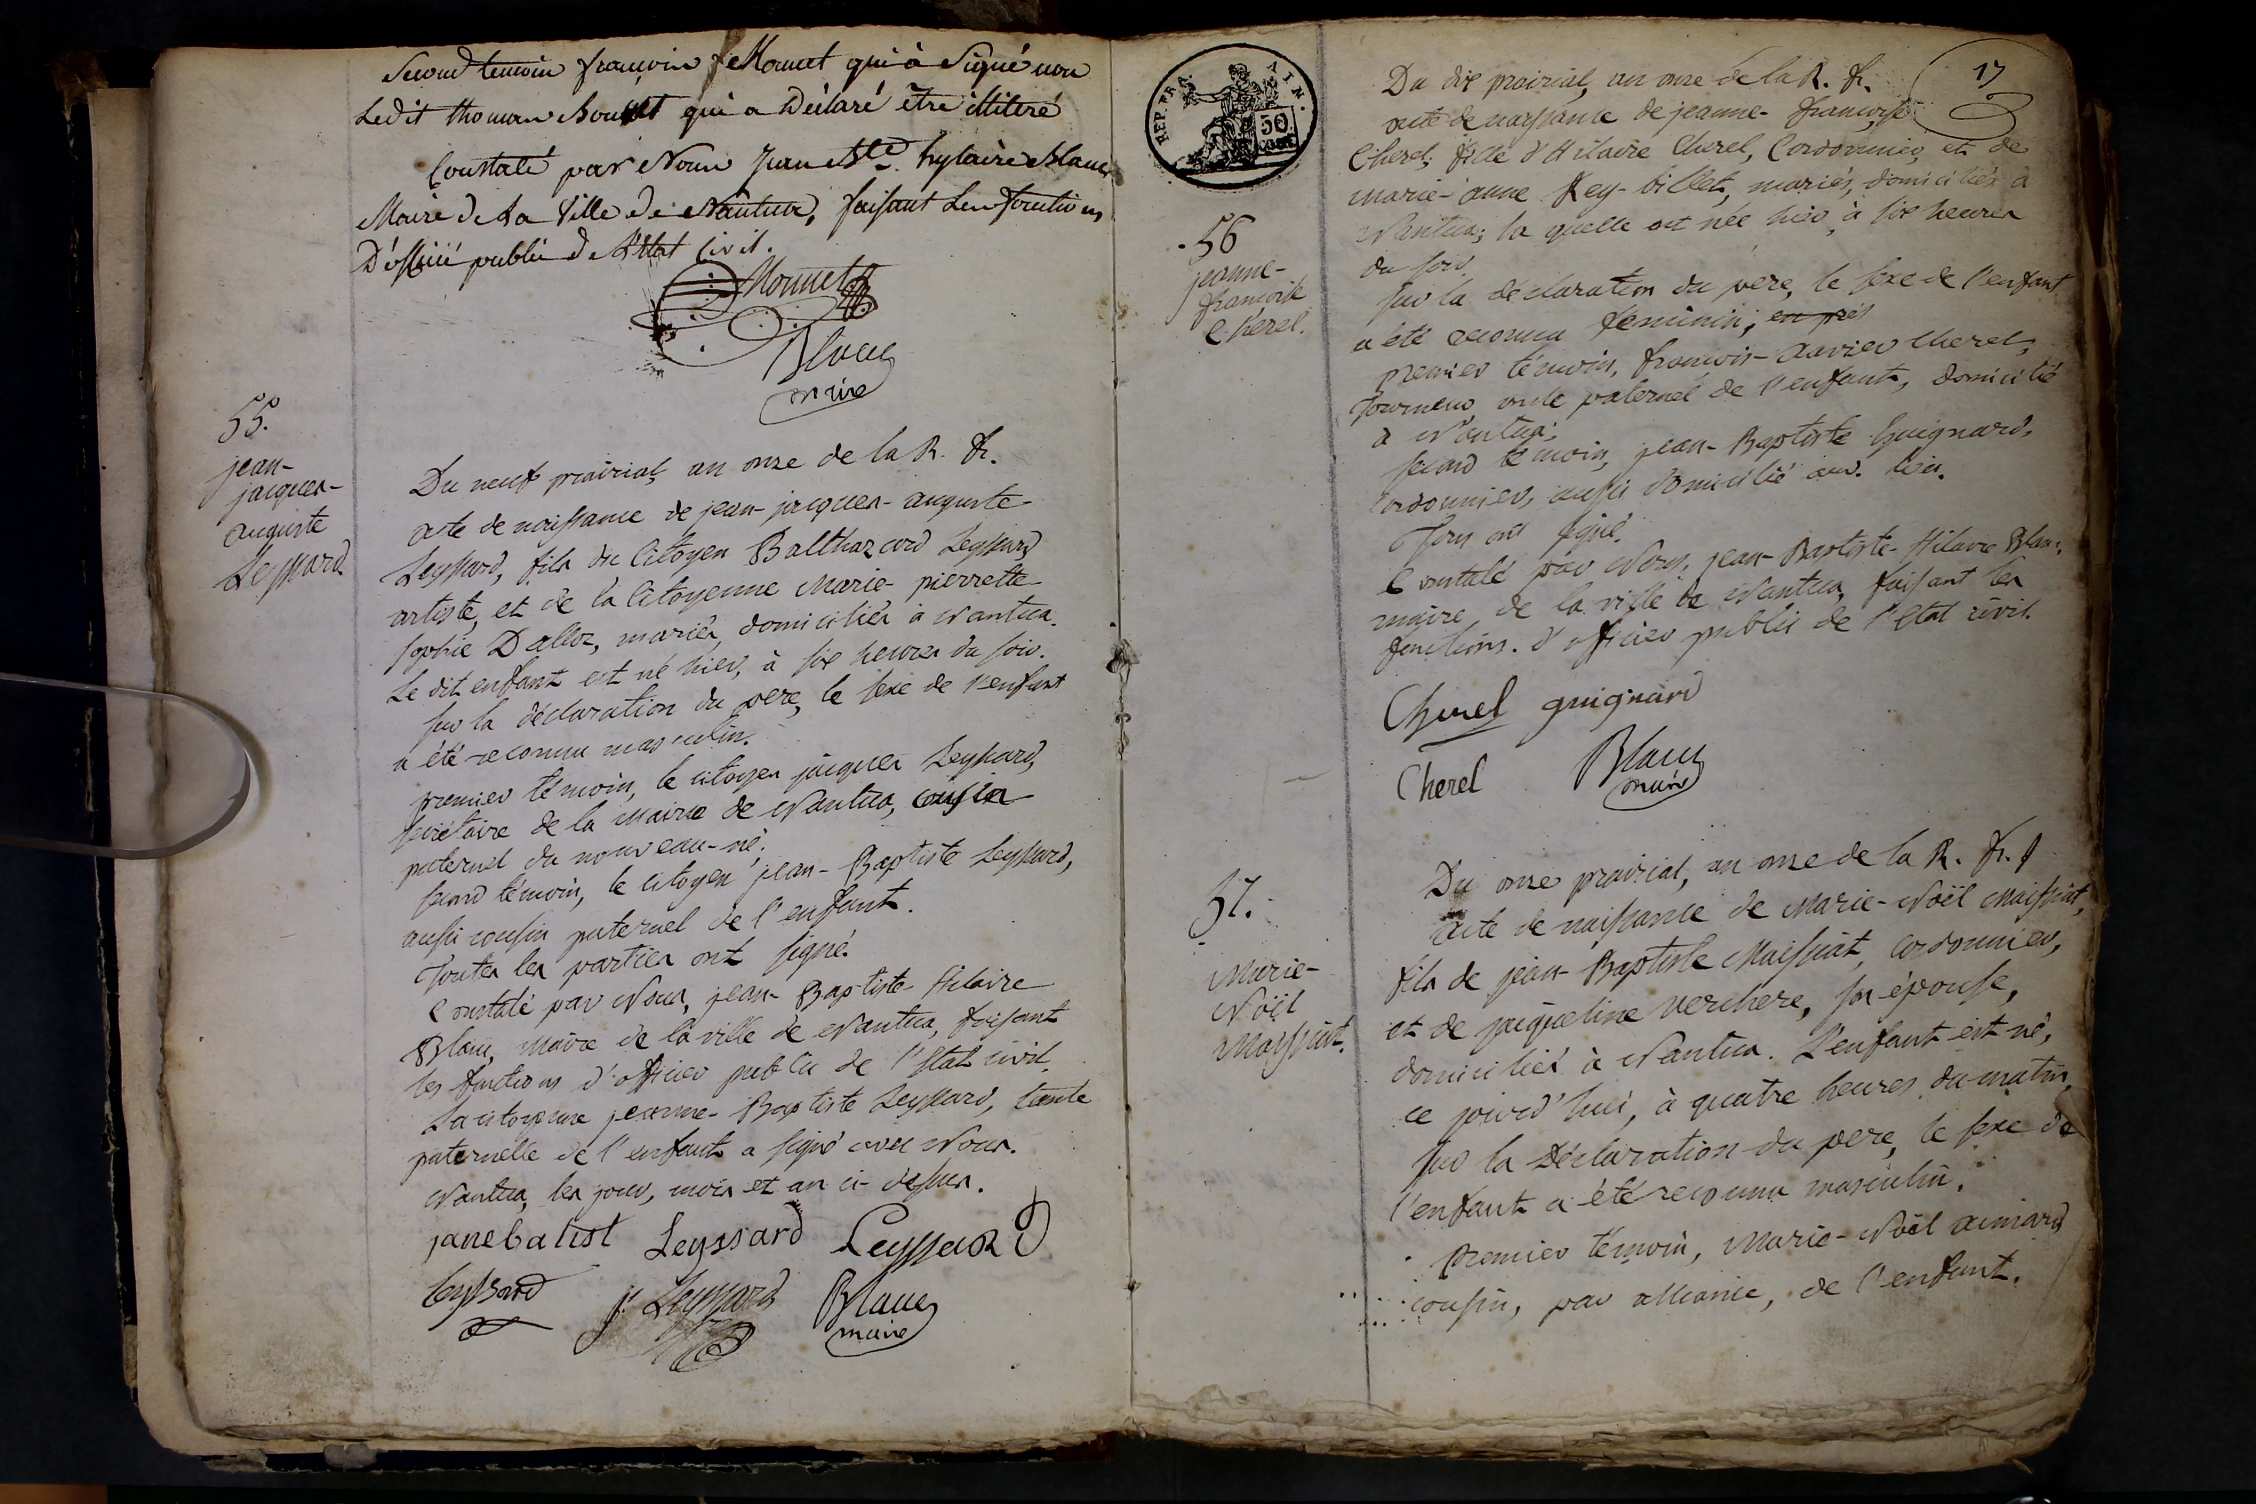 Second temoin françois Monnet qui à Signé non
Ledit thomas Bouvet qui a Déclaré être illiteré
Constaté par Nous Jean Bte. hylaire Blanc
Maire de La Ville de Nantua, faisant Les fonctions
D'officié public de L'Etat Civil.
Monnet
Blanc
maire
55.
jean-
jacques-
auguste
Leyssard
Du neuf prairial, an onze de la R. fr.
acte de naissance de jean-jacques-auguste
Leyssard, fils du Citoyen Balthazard Leyssard
artiste, et de la Citoyenne Marie pierrette
sophie Dalloz, mariés, domiciliés à Nantua.
Le dit enfant est né hier, à six heures du soir.
sur la déclaration du pere, le sexe de l'enfant
a été reconnu masculin.
premier témoin, le citoyen jacques Leyssard,
secrétaire de la mairie de Nantua, cousin
paternel du nouveau-né.
second témoin, le citoyen jean-Baptiste Leyssard,
aussi cousin paternel de l'enfant.
Toutes les parties ont signé.
Constaté par Nous, jean-Baptiste-Hilaire
Blanc, maire de la ville de Nantua, faisant
les fonctions d'officier public de l'Etat civil.
La citoyenne jeanne-Baptiste Leyssard, tante
paternelle de l'enfant a signé avec Nous.
Nantua, les jour, mois et an ci-dessus.
janebatist Leyssard Leyssard
Leyssard js. Leyssard Blanc
maire
REP. FRA. 50 CENT.
17
56
jeanne-
françoise
Cherel.
Du dix prairial, an onze de la R. fr.
acte de naissance de jeanne-françoise
Cherel, fille d'Hilaire Cherel, Cordonnier, et de
marie-anne Rey-billet, mariés, domiciliés à
Nantua; la quelle est née hier, à six heures
du soir.
sur la déclaration du pere, le sexe de l'enfant
a été reconnu feminin; en prés
premier témoin, françois-xavier Cherel,
Tourneur, oncle paternel de l'enfant, domicilié
à Nantua;
second témoin, jean-Baptiste Guignard,
cordonnier, aussi domicilié aud. lieu.
Tous ont signé.
Constaté par Nous, jean-Baptiste-Hilaire Blanc,
maire de la ville de Nantua, faisant les
fonctions d'officier public de l'Etat civil.
Cherel guignard
Cherel Blanc
maire
57.
Marie-
Noël
Maissiat.
Du onze prairial, an onze de la R. fr.
acte de naissance de Marie-Noël Maissiat,
fils de jean-Baptiste Maissiat, cordonnier,
et de jacqueline Verchere, son épouse,
domiciliés à Nantua. L'enfant est né,
ce jourd'hui, à quatre heures du matin,
sur la déclaration du pere, le sexe de
l'enfant a été reconnu masculin.
premier témoin, Marie-Noël aimard
cousin, par alliance, de l'enfant.